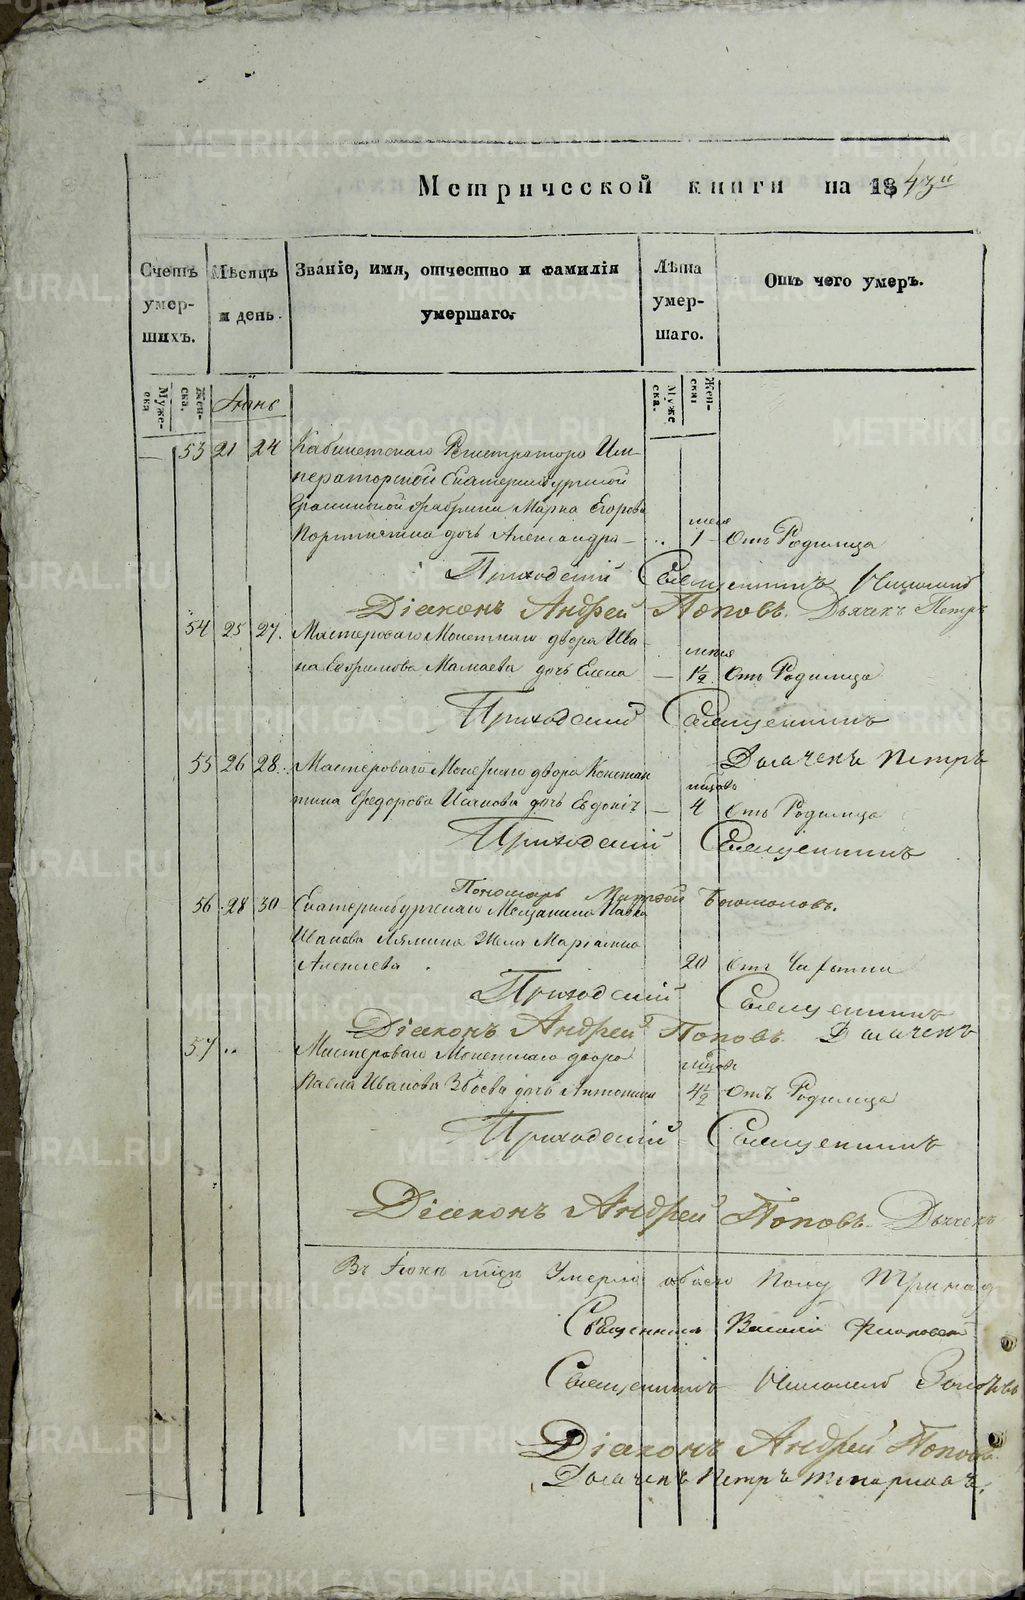 Метрической книги на 1843й
Счетъ умер- шихъ.
Мѣсяцъ и день.
Званіе, имя, отчество и фамилія умершаго.
Лѣта умер- шаго.
Отъ чего умеръ.
Муже- ска
Жен- ска.
Іюнь
Муже ска.
Жен- ска:
— 53 21 24 Кабинетскаго Регистратора Им-
ператорской Екатеринбургской
Гранильной фабрики Марка Егорова
дочь Александра — 1 Отъ Родимца
Приходскій Священникъ Николай
Діаконъ Андрей Поповъ. Дьячекъ Петръ
54 25 27. Мастероваго Монетнаго двора Ива-
на Ефримова Мамаева дочь Елена — 1½ Отъ Родимца
Приходский Священникъ
Дьячекъ Петръ
55 26 28. Мастероваго Монетнаго двора Констан
тина Федорова Исакова дочь — 4 Отъ Родимца
Приходскій Священникъ
Пономарь
56 28 30 Екатеринбургскаго Мещанина Павла
Иванова Лямина Жена
Алексѣева 20 Отъ Чахотки
Приходскій Священникъ
Діаконъ Андрей Поповъ. Дьячекъ
57 .. Мастероваго Монетнаго двора
Павла Иванова Збоева дочь Антонина 4½ Отъ Родимца
Приходскій Священникъ
Діаконъ Андрей Поповъ. Дьячекъ
Въ Іюнѣ Умерло обоего Полу Тринад
Священникъ Василій
Священникъ Николай
Діаконъ Андрей Поповъ.
Дьячекъ Петръ
METRIKI.GASO-URAL.RU